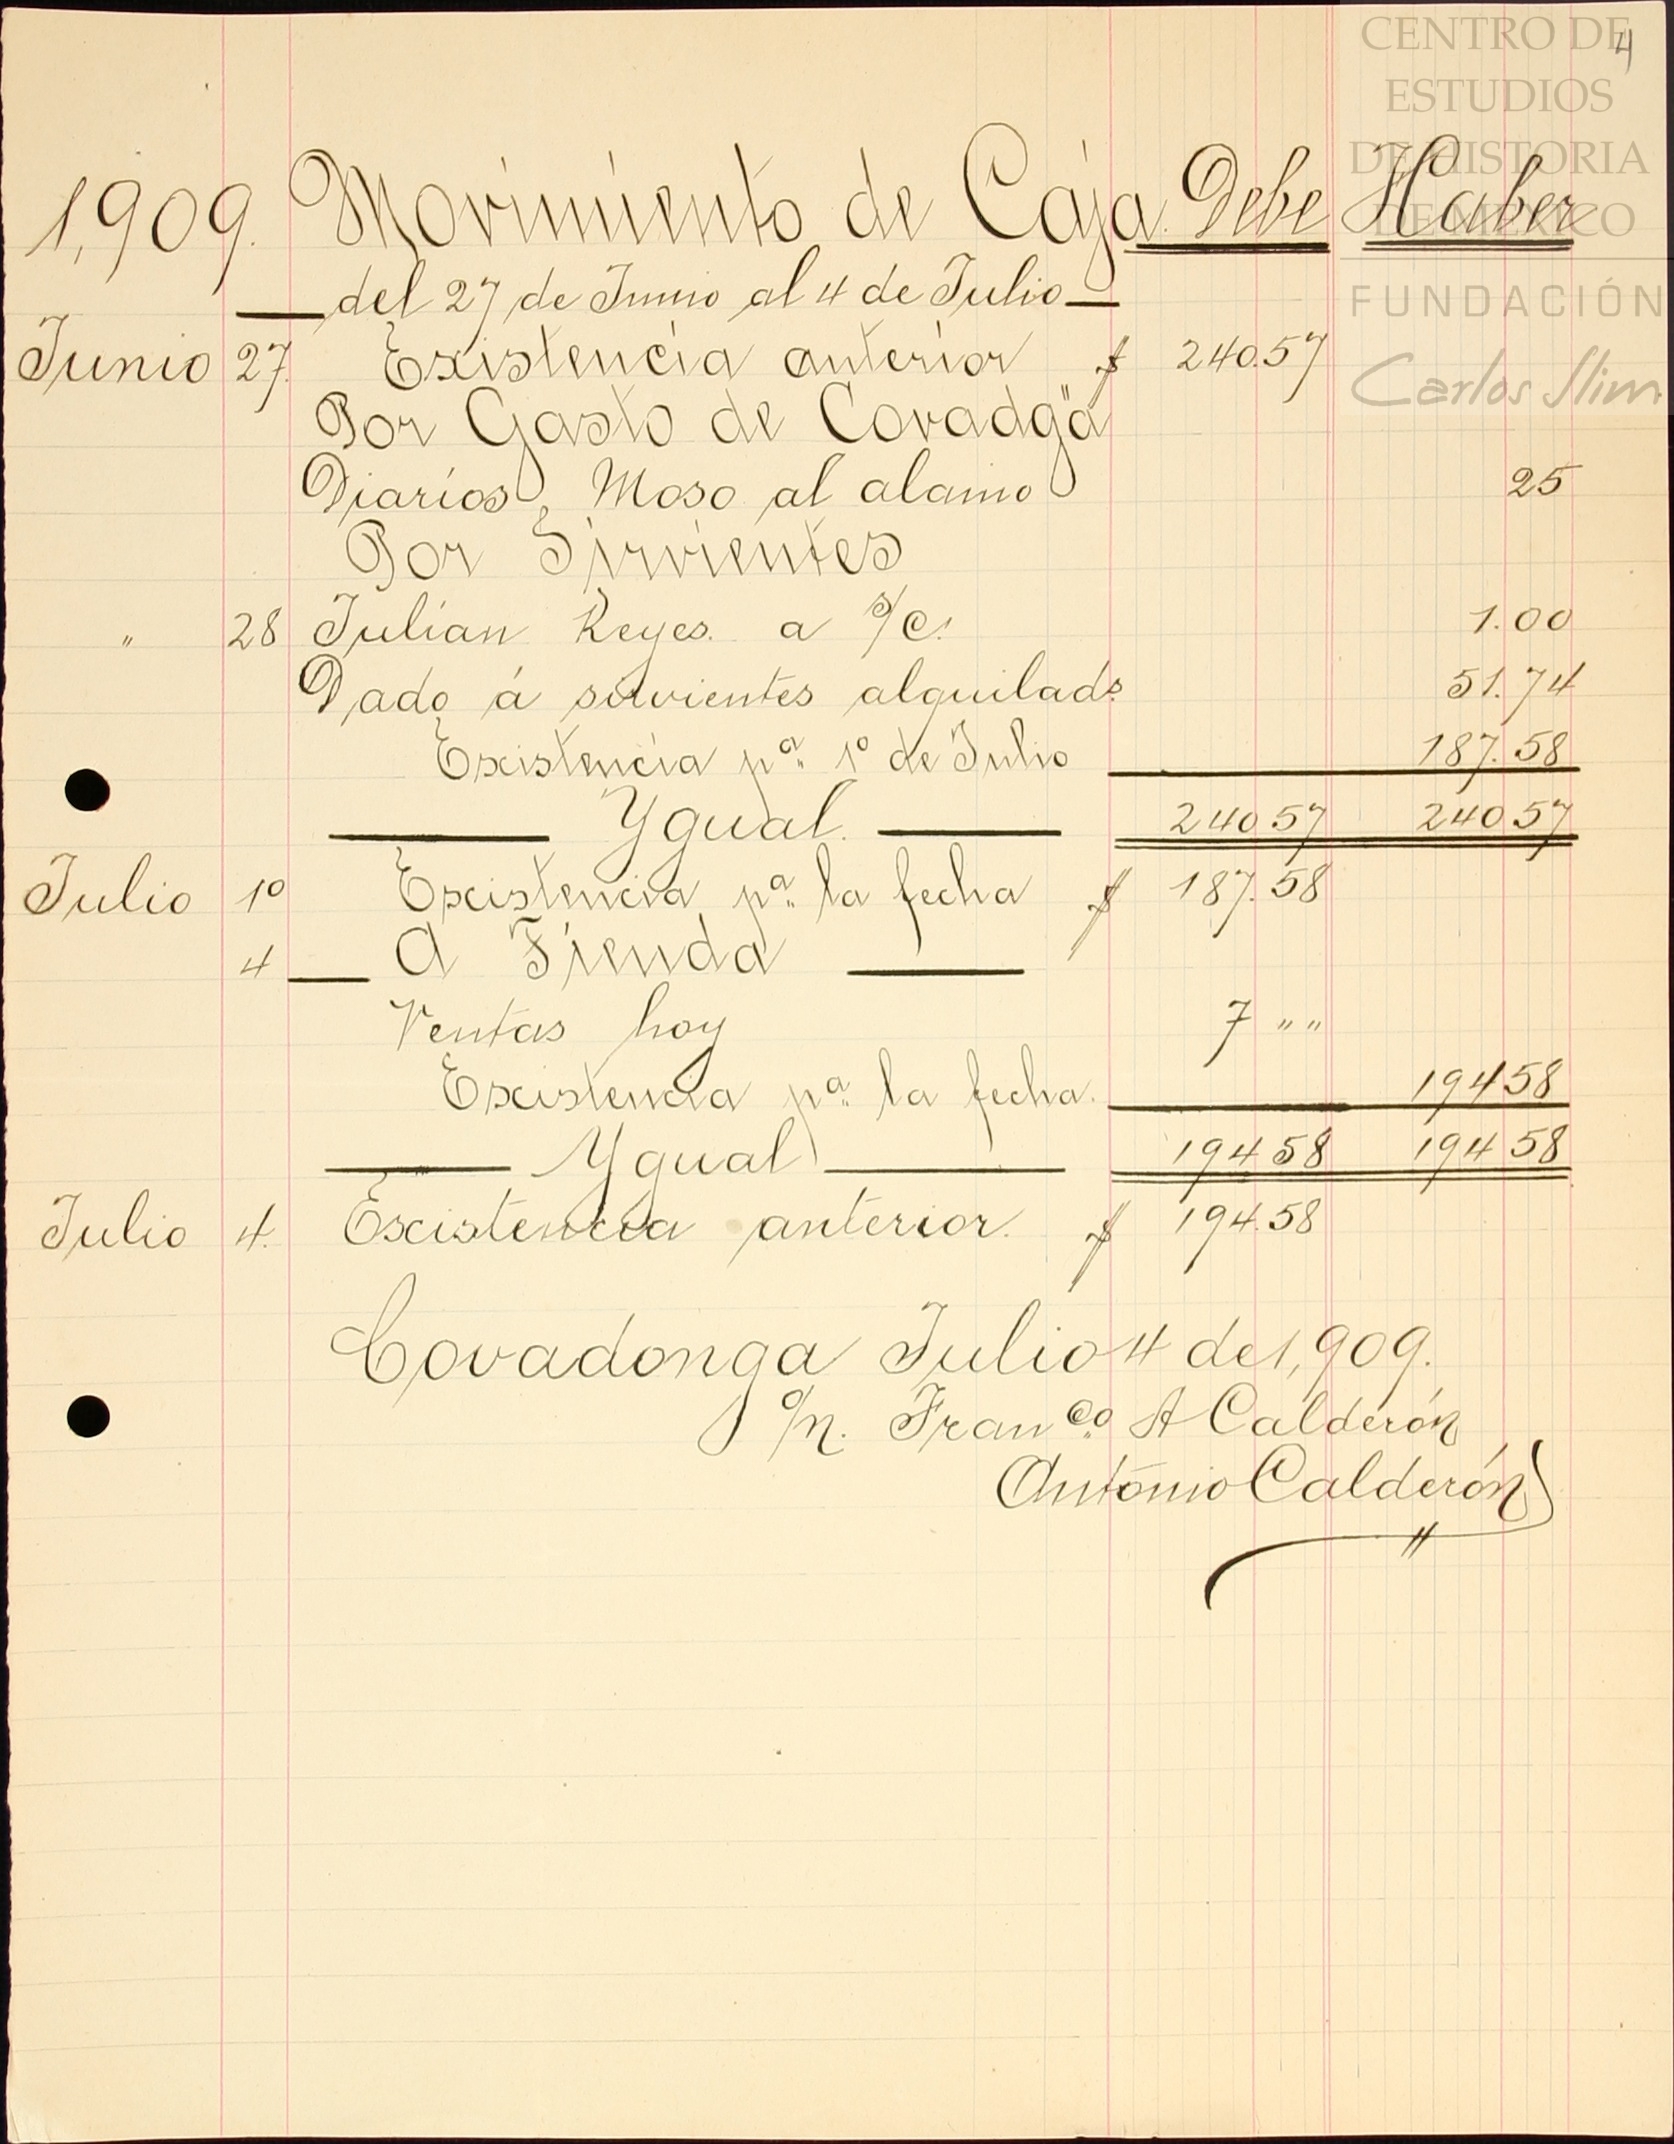 CENTRO DE
ESTUDIOS
DE HISTORIA
DE MÉXICO
FUNDACIÓN
Carlos Slim
4
1,909. Movimiento de Caja. Debe Haber
del 27 de Junio al 4 de Julio
Junio 27. Existencia anterior $ 240.57
Por Gasto de Covadgª
Diarios, Moso al alamo 25
Por Sirvientes
" 28 Julian Reyes. a s/c. 1.00
Dado á sirvientes alquilads. 51.74
Existencia pª. 1º de Julio 187.58
Ygual. 240 57 240 57
Julio 1º Existencia pª. la fecha $ 187.58
4 A Tienda
Ventas hoy 7 " "
Existencia pª. la fecha. 194 58
Ygual 194 58 194 58
Julio 4. Existencia anterior. $ 194.58
Covadonga Julio 4 de 1,909.
Franco. A Calderón
Antonio Calderón